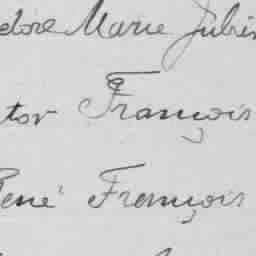 dore Marie Jubin
tor François
René François